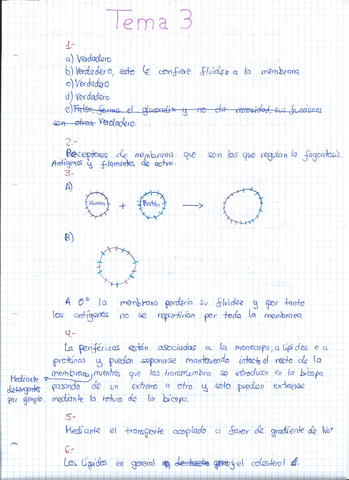 Tema 3
1.-
a) Verdadero
b) Verdadero, esto le confiere fluidez a la membrana
c) Verdadero
d) Verdadero
e) Falso, forma el glucocalix y no da viscosidad, sus funciones
son otras Verdadero.
2.-
Receptores de membrana que son los que regulan la fagocitosis.
Antígenos y filamentos de actina.
3.-
A)
Humano + Ratón
B)
A 0° la membrana perdería su fluidez y por tanto
los antígenos no se repartirían por toda la membrana.
4.-
La periféricas están asociadas a la monocapa, a lípidos o a
proteínas y pueden separarse manteniendo intacto el resto de la
membrana, mientras que las transmembra se introducen en la bicapa
pasando de un extremo a otro y solo pueden extraerse
mediante la rotura de la bicapa.
Mediante
detergentes
por ejemplo.
5.-
Mediante el transporte acoplado a favor de gradiente de Na+
6.-
Los lípidos en general y el colesterol